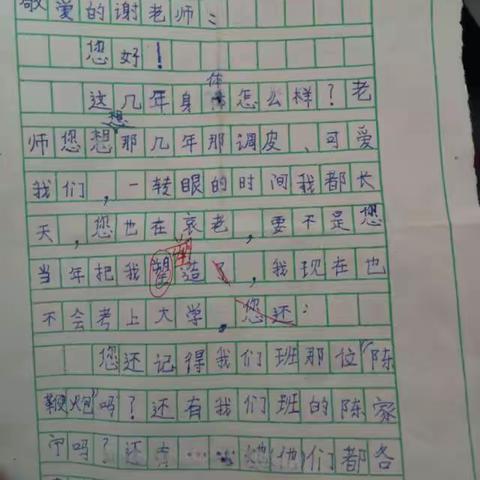 敬爱的谢老师：
您好！
这几年身体怎么样？老
师您想那几年那调皮、可爱
我们，一转眼的时间我都长
天，您也在衰老，要不是您
当年把我塑造，我现在也
不会考上大学。您还：
您还记得我们班那位"陈
鞭炮"吗？还有我们班的陈家
吗？还有……他们都各